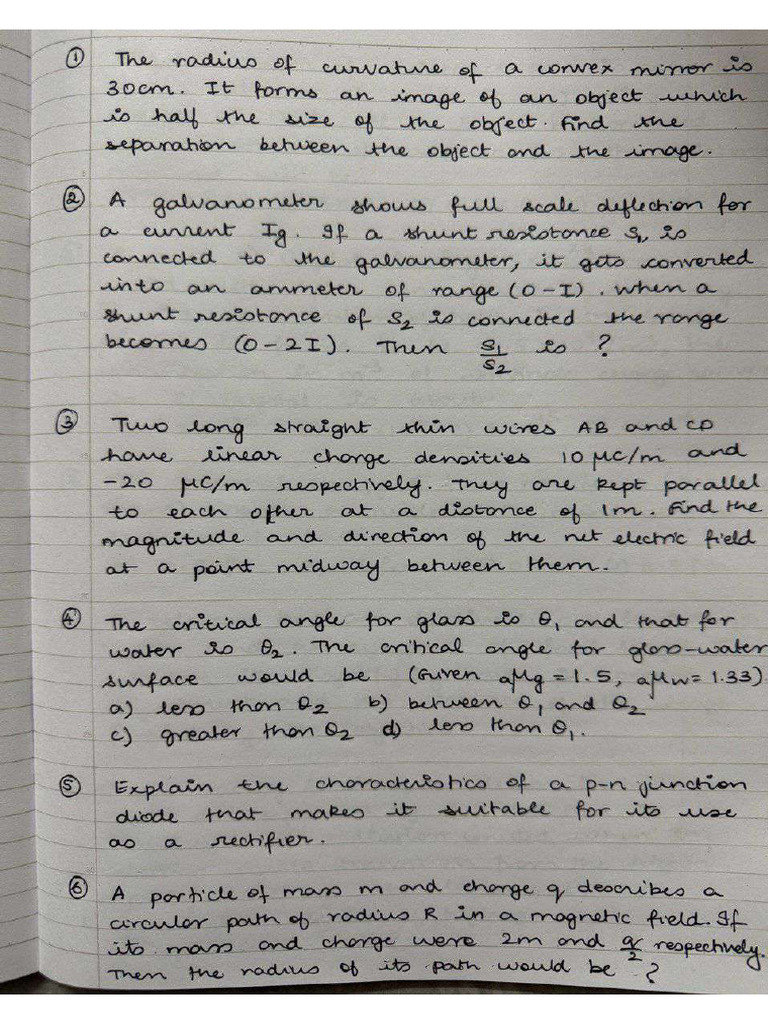 ① The radius of curvature of a convex mirror is
30cm. It forms an image of an object which
is half the size of the object. Find the
separation between the object and the image.
② A galvanometer shows full scale deflection for
a current Ig. If a shunt resistance S₁, is
connected to the galvanometer, it gets converted
into an ammeter of range (0-I). When a
shunt resistance of S₂ is connected the range
becomes (0-2I). Then S₁/S₂ is ?
③ Two long straight thin wires AB and CD
have linear charge densities 10 μC/m and
-20 μC/m respectively. They are kept parallel
to each other at a distance of 1m. Find the
magnitude and direction of the net electric field
at a point midway between them.
④ The critical angle for glass is θ₁ and that for
water is θ₂. The critical angle for glass-water
surface would be (Given aμg = 1.5, aμw = 1.33)
a) less than θ₂ b) between θ₁ and θ₂
c) greater than θ₂ d) less than θ₁.
⑤ Explain the characteristics of a p-n junction
diode that makes it suitable for its use
as a rectifier.
⑥ A particle of mass m and charge q describes a
circular path of radius R in a magnetic field. If
its mass and charge were 2m and q/2 respectively.
Then the radius of its path would be ?